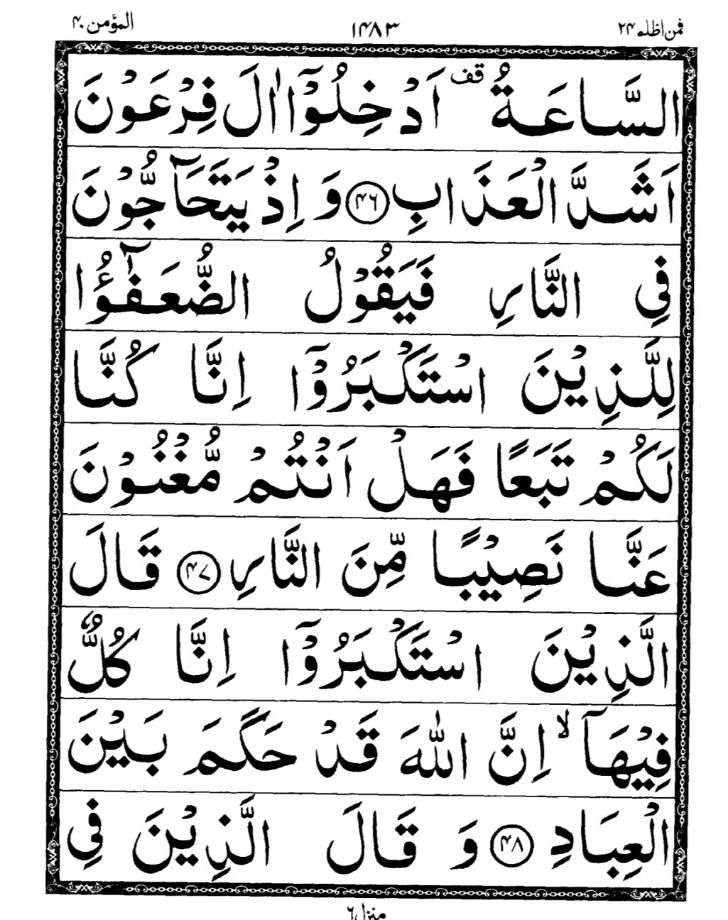 فمن اظلم ۲۴ ۱۴۸۳ المؤمن ۴۰
السَّاعَةُ ۟قف اَدْخِلُوْۤا اٰلَ فِرْعَوْنَ
اَشَدَّ الْعَذَابِ ﴿۴۶﴾ وَ اِذْ يَتَحَآجُّوْنَ
فِي النَّارِ فَيَقُوْلُ الضُّعَفٰٓؤُا
لِلَّذِيْنَ اسْتَكْبَرُوْۤا اِنَّا كُنَّا
لَكُمْ تَبَعًا فَهَلْ اَنْتُمْ مُّغْنُوْنَ
عَنَّا نَصِيْبًا مِّنَ النَّارِ ﴿۴۷﴾ قَالَ
الَّذِيْنَ اسْتَكْبَرُوْۤا اِنَّا كُلٌّ
فِيْهَاۤ ۙ اِنَّ اللّٰهَ قَدْ حَكَمَ بَيْنَ
الْعِبَادِ ﴿۴۸﴾ وَ قَالَ الَّذِيْنَ فِي
منزل ۶